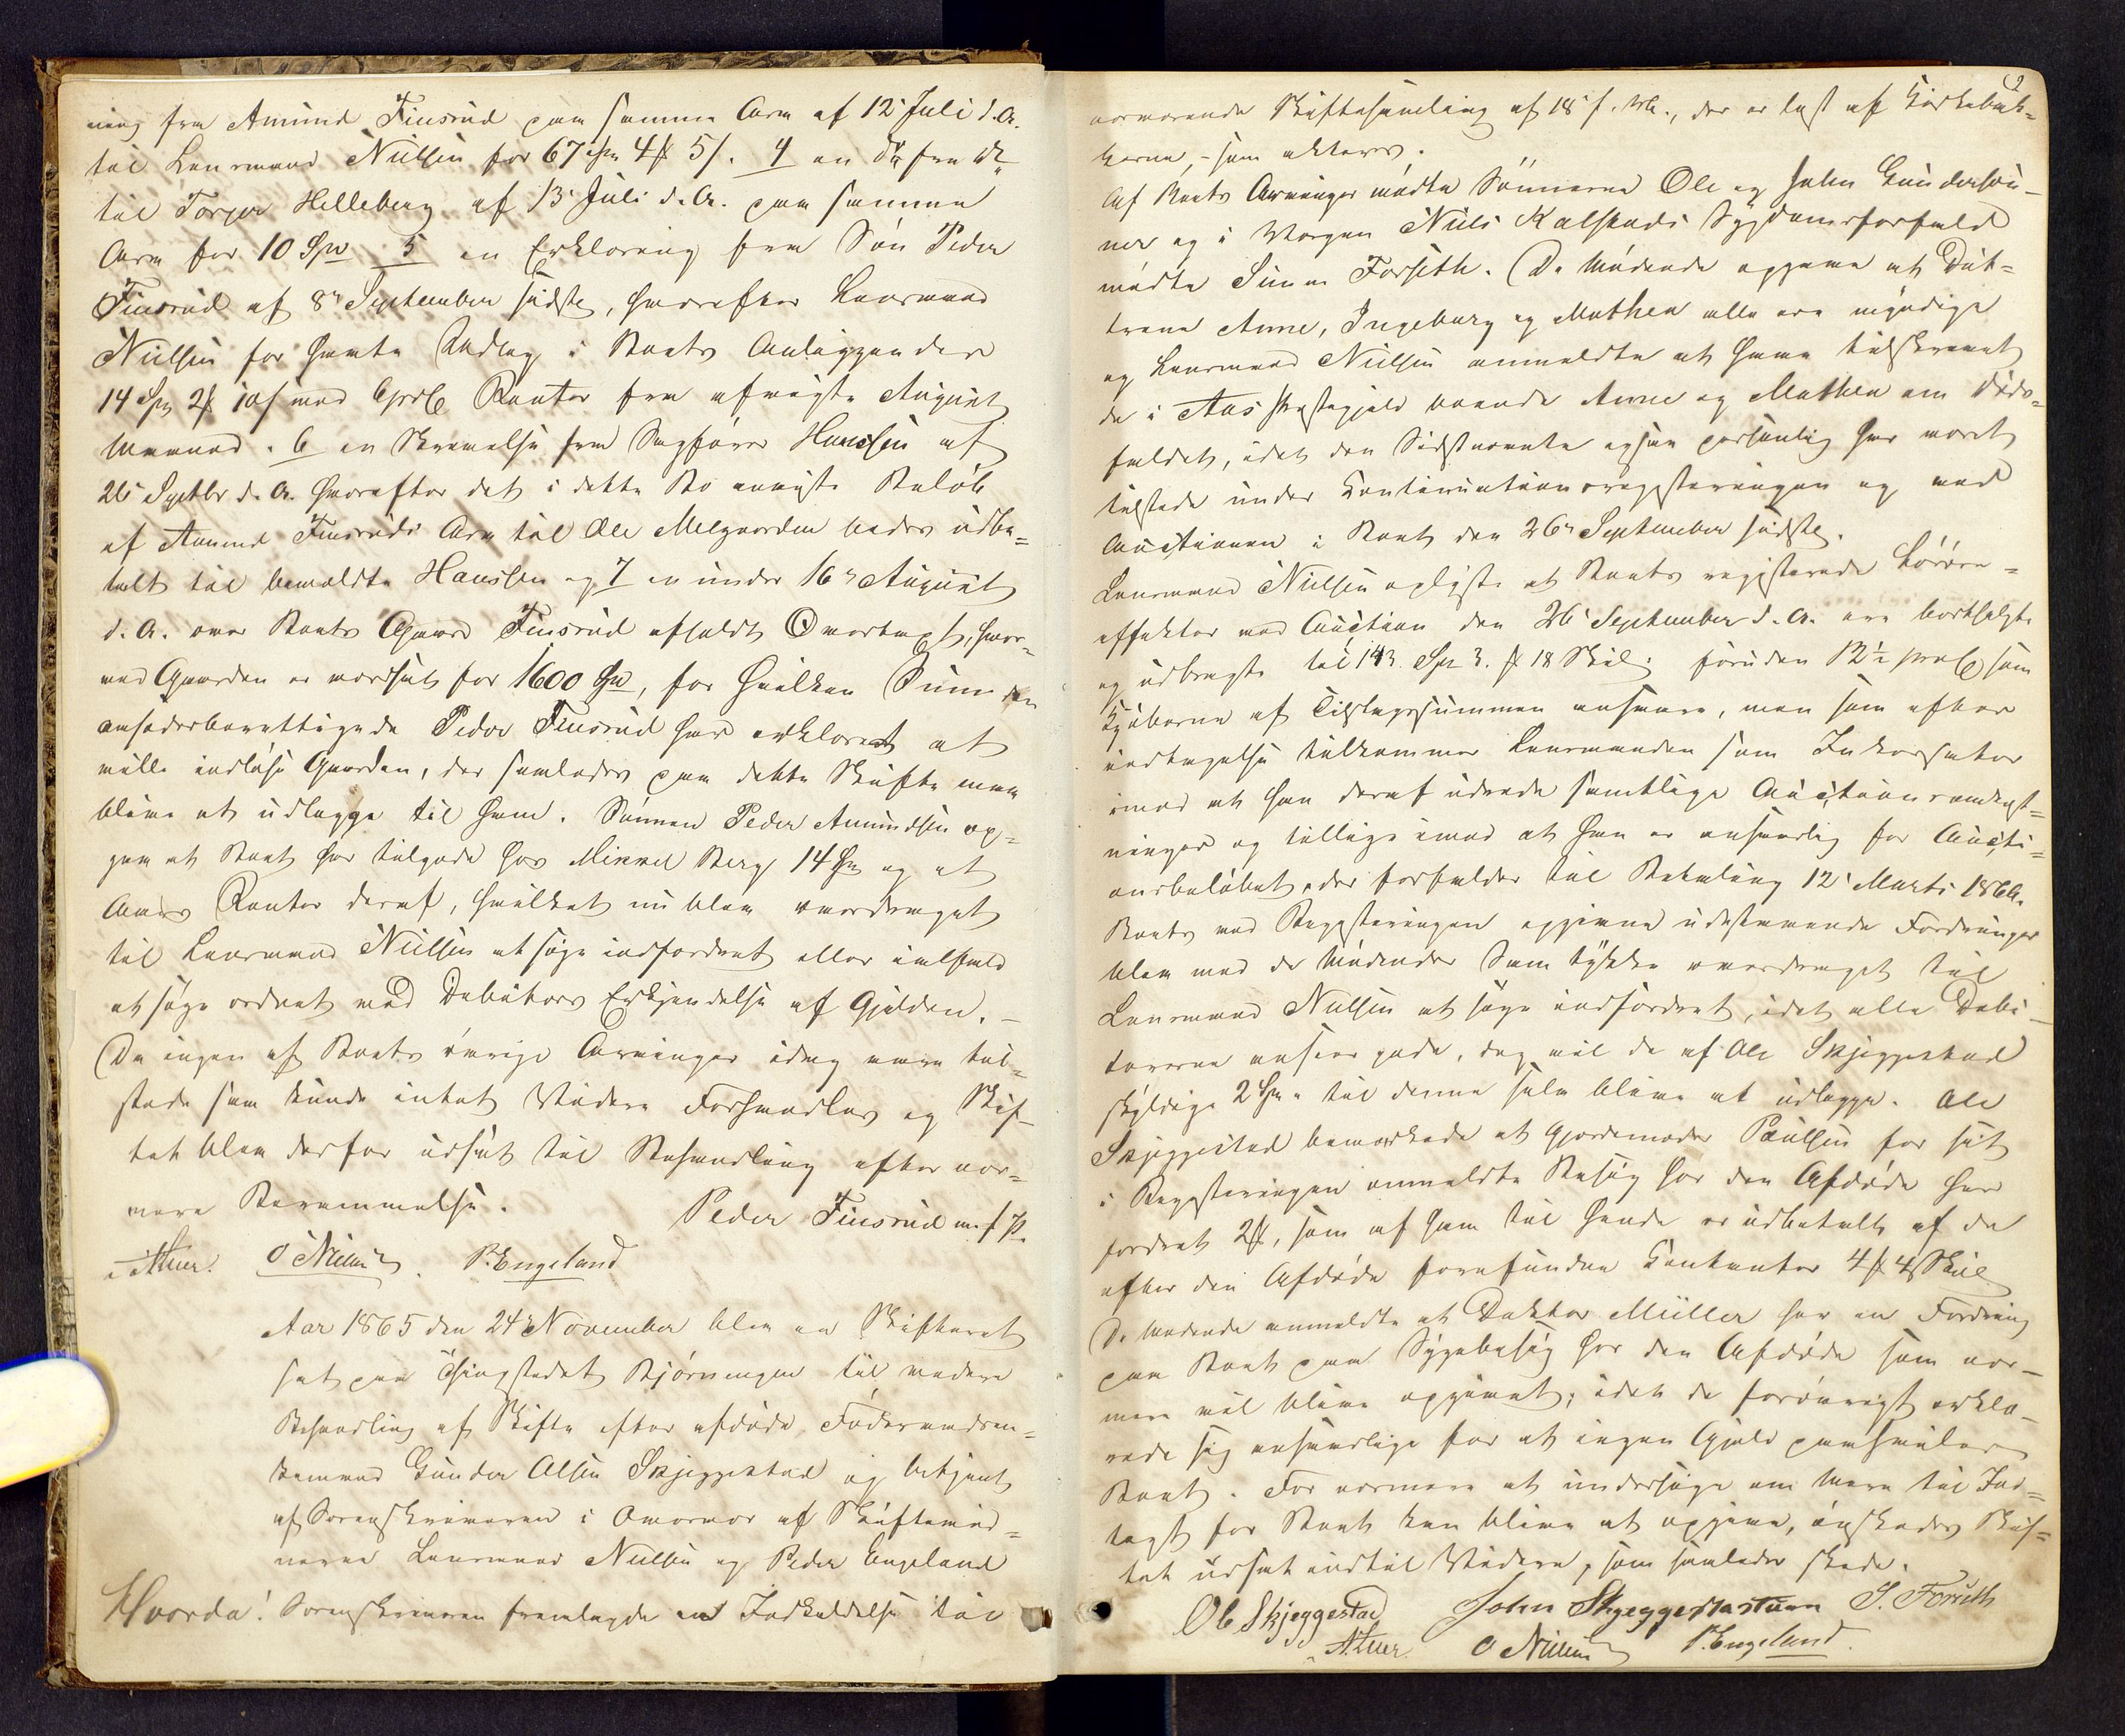 ning fra Amund Finsrud paa samme Arv af 12' Juli d. A.
til Lensmand Nielsen for 67 Spd 4 # 5 s. 4 en do fra do
til Torger Helleberg af 13' Juli d. A. paa samme
Arv for 10 Spd 5 en Erklæring fra Søn Peder
Finsrud af 8de September sidstl, hvorefter Lensmand
Nielsen for havte Udlæg i Boets Anliggender
14 Spd 2 # 10 s med 6 prC Renter fra afvigte August
Maaned. 6 en Skrivelse fra Sagfører Hanssen af
26' Septbr d. A. hvorefter det i dette Bo anviste Beløb
af Amund Finsruds Arv til Ole Melgaarden bedes udbe=
talt til bemeldte Hanssen og 7 en under 16de August
d. A. over Boets Gaard Finsrud afholdt Overtaxt, hvor=
ved Gaarden er værdsat for 1600 Spd, for hvilken Sum den
aasædesberettigede Peder Finsrud har erklæret at
ville indløse Gaarden, der saaledes paa dette Skifte maa
blive at udlægge til ham. Sønnen Peder Amundsen op=
gav at Boet har tilgode hos Mikkel Berg 14 Spd og et
Aars Renter deraf, hvilket nu blev overdraget
til Lensmand Nielsen at søge indfordret eller ialfald
at søge ordnet med Debitors Erkjendelse af Gjælden. –
Da ingen af Boets øvrige Arvinger idag vare til=
stede saa kunde intet Videre Forhandles og Skif=
tet blev derfor udsat til Behandling efter nær=
mere Berammelse.
Peder Finsrud m. f. P.
O Nielsen P. Engeland
Aar 1865 den 24de November blev en Skifteret
sat paa Thingstedet Bjørningen til videre
Behandling af Skifte efter afdøde Føderaadsen=
kemand Gunder Olsen Skjeggestad og betjent
af Sorenskriveren i Overvær af Skiftevid=
nerne Lensmand Nielsen og Peder Engeland
Hvorda! Sorenskriveren fremlagde en Indkaldelse til
2
nærværende Skiftesamling af 18' f. M., der er læst af Kirkebak=
kerne, – som akteres.
Af Boets Arvinger mødte Sønnerne Ole og John Gundersøn=
ner og i Værgen Niels Kalstads Sygdomsforfald
mødte Simen Forseth. De Mødende opgave at Døt=
trene Anne, Ingeborg og Mathea alle ere myndige
og Lensmand Nielsen anmeldte at have tilskrevet
de i Aas Præstegjeld boende Anne og Mathea om Døds=
faldet, idet den Sidstnævnte ogsaa personlig har været
tilstede under Continuationsregistreringen og ved
Auctionen i Boet den 26de September sidstl.
Lensmand Nielsen oplyste at Boets registrerede Løsøre=
effekter ved Auction den 26' September d. A. ere bortsolgte
og udbragte til 143 Spd 3 # 18 Skil. foruden 12½ proC som
Kjøberne af Tilslagssummen ansvare, men som efter
Vedtagelse tilkommer Lensmanden som Inkassator
imod at han deraf udreder samtlige Auctionsomkost=
ninger og tillige imod at han er ansvarlig for Aucti=
onsbeløbet, der forfalder til Betaling 12' Marts 1866.
Boets ved Registreringen opgivne udestaaende Fordringer
blev med de Mødendes Samtykke overdraget til
Lensmand Nielsen at søge indfordret, idet alle Debi=
torerne ansees gode, dog vil de af Ole Skjeggestad
skyldige 2 Spd. til denne selv blive at udlægge. Ole
Skjeggestad bemærkede at Gjordemoder Paulsen for sit
i Registreringen anmeldte Besøg hos den Afdøde har
fordret 2 #, som af ham til hende er udbetalt af de
efter den Afdøde forefundne Contanter 4 # 4 Skil
De Mødende anmeldte at Doktor Müller har en Fordring
paa Boet paa Sygebesøg hos den Afdøde som nær=
mere vil blive opgivet; idet de forøvrigt erklæ=
rede sig ansvarlige for at ingen Gjæld paahviler
Boet. For nærmere at undersøge om mere til Ind=
tægt for Boet kan blive at opgive, ønskedes Skif=
tet udsat indtil Videre, som saaledes skede.
Ole Skjeggestad John Skjeggestastuen S. Forseth
O Nielsen P. Engeland.